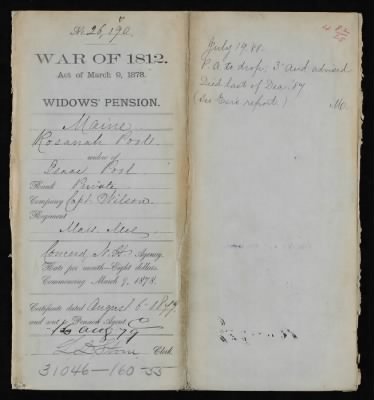 No. 26,190.
WAR OF 1812.
Act of March 9, 1878.
WIDOWS' PENSION.
Maine
Rosanah Post
widow of
Isaac Post
Rank Private
Company Capt. Wilson
Regiment
Mass. Mil.
Concord, N.H. Agency.
Rate per month—Eight dollars.
Commencing March 9, 1878.
Certificate dated August 6 1879
and sent to Pension Agent,
12 Aug 79
Clerk.
31046—160-55
July 19. 88.
P.A. to drop; 3rd Aud advised
Died last of Dec. '87
(See report.)